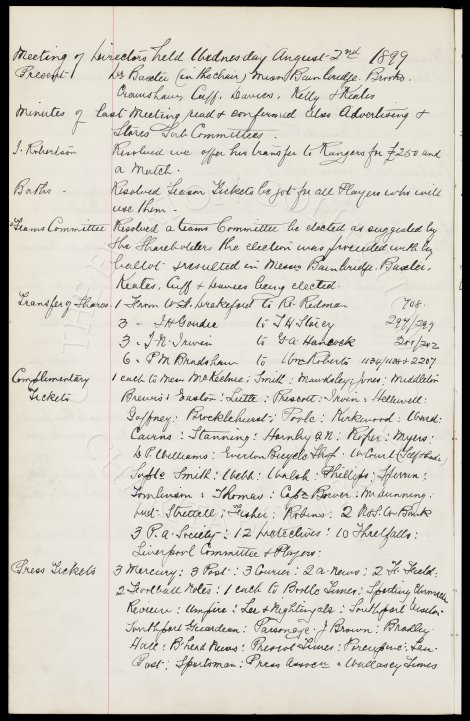 Meeting of Directors held Wednesday August 2nd 1899
Present Dr Baxter (in the chair) Messrs Bainbridge, Brooks,
Crawshaw, Cuff, Davies, Kelly & Keates
Minutes of last Meeting read & confirmed also Advertising &
Stores Sub Committees
J. Robertson Resolved we offer his transfer to Rangers for £250 and
a Match.
Baths. Resolved Season Tickets be got for all Players who will
use them.
Teams Committee Resolved a teams Committee be elected as suggested by
the Shareholders the election was proceeded with by
ballot & resulted in Messrs Bainbridge, Baxter,
Keates, Cuff & Davies being elected.
Transfer of Shares 1 From W. Wakeford to Re. Redman 908
3 " J H Goudie to T H Storey
3 " J. N. Irwin to G. A. Hancock
6 " P M Bradshaw to Wm Roberts
Complimentary 1 each to Messrs McKechnie: Smith: Mawdsley: Jones: Middleton
Tickets Brewis: Easton: Little: Prescott: Irvin: Halliwell:
Gaffney: Brocklehurst: Poole: Kirkwood: Ward:
Cairns: Stanning: Hornby A N: Roper: Myers:
W P Williams: Everton Bicycle Shop:
Smith: Webb: Walsh: Phillips:
Tomlinson: Thomas: Capt Bower: Mr Dunning:
Strettell: Fisher: Robins. 2 Bank
3 P. A. Society: 12 Detectives: 10 Threlfalls:
Liverpool Committee & Players:
Press Tickets 3 Mercury: 3 Post: 3 Courier: 2 a. News: 2 F. Field:
2 Football Notes: 1 each to Bootle Times: Sporting Chronicle
Review: Umpire: Lee & Nightingale: Southport Visitor
Southport Guardian: Parsonage: J Brown: Bradley
Hall: B'head News: Prescot Times: Porcupine: Lan.
Post: Sportsman: Press Assocn & Wallasey Times